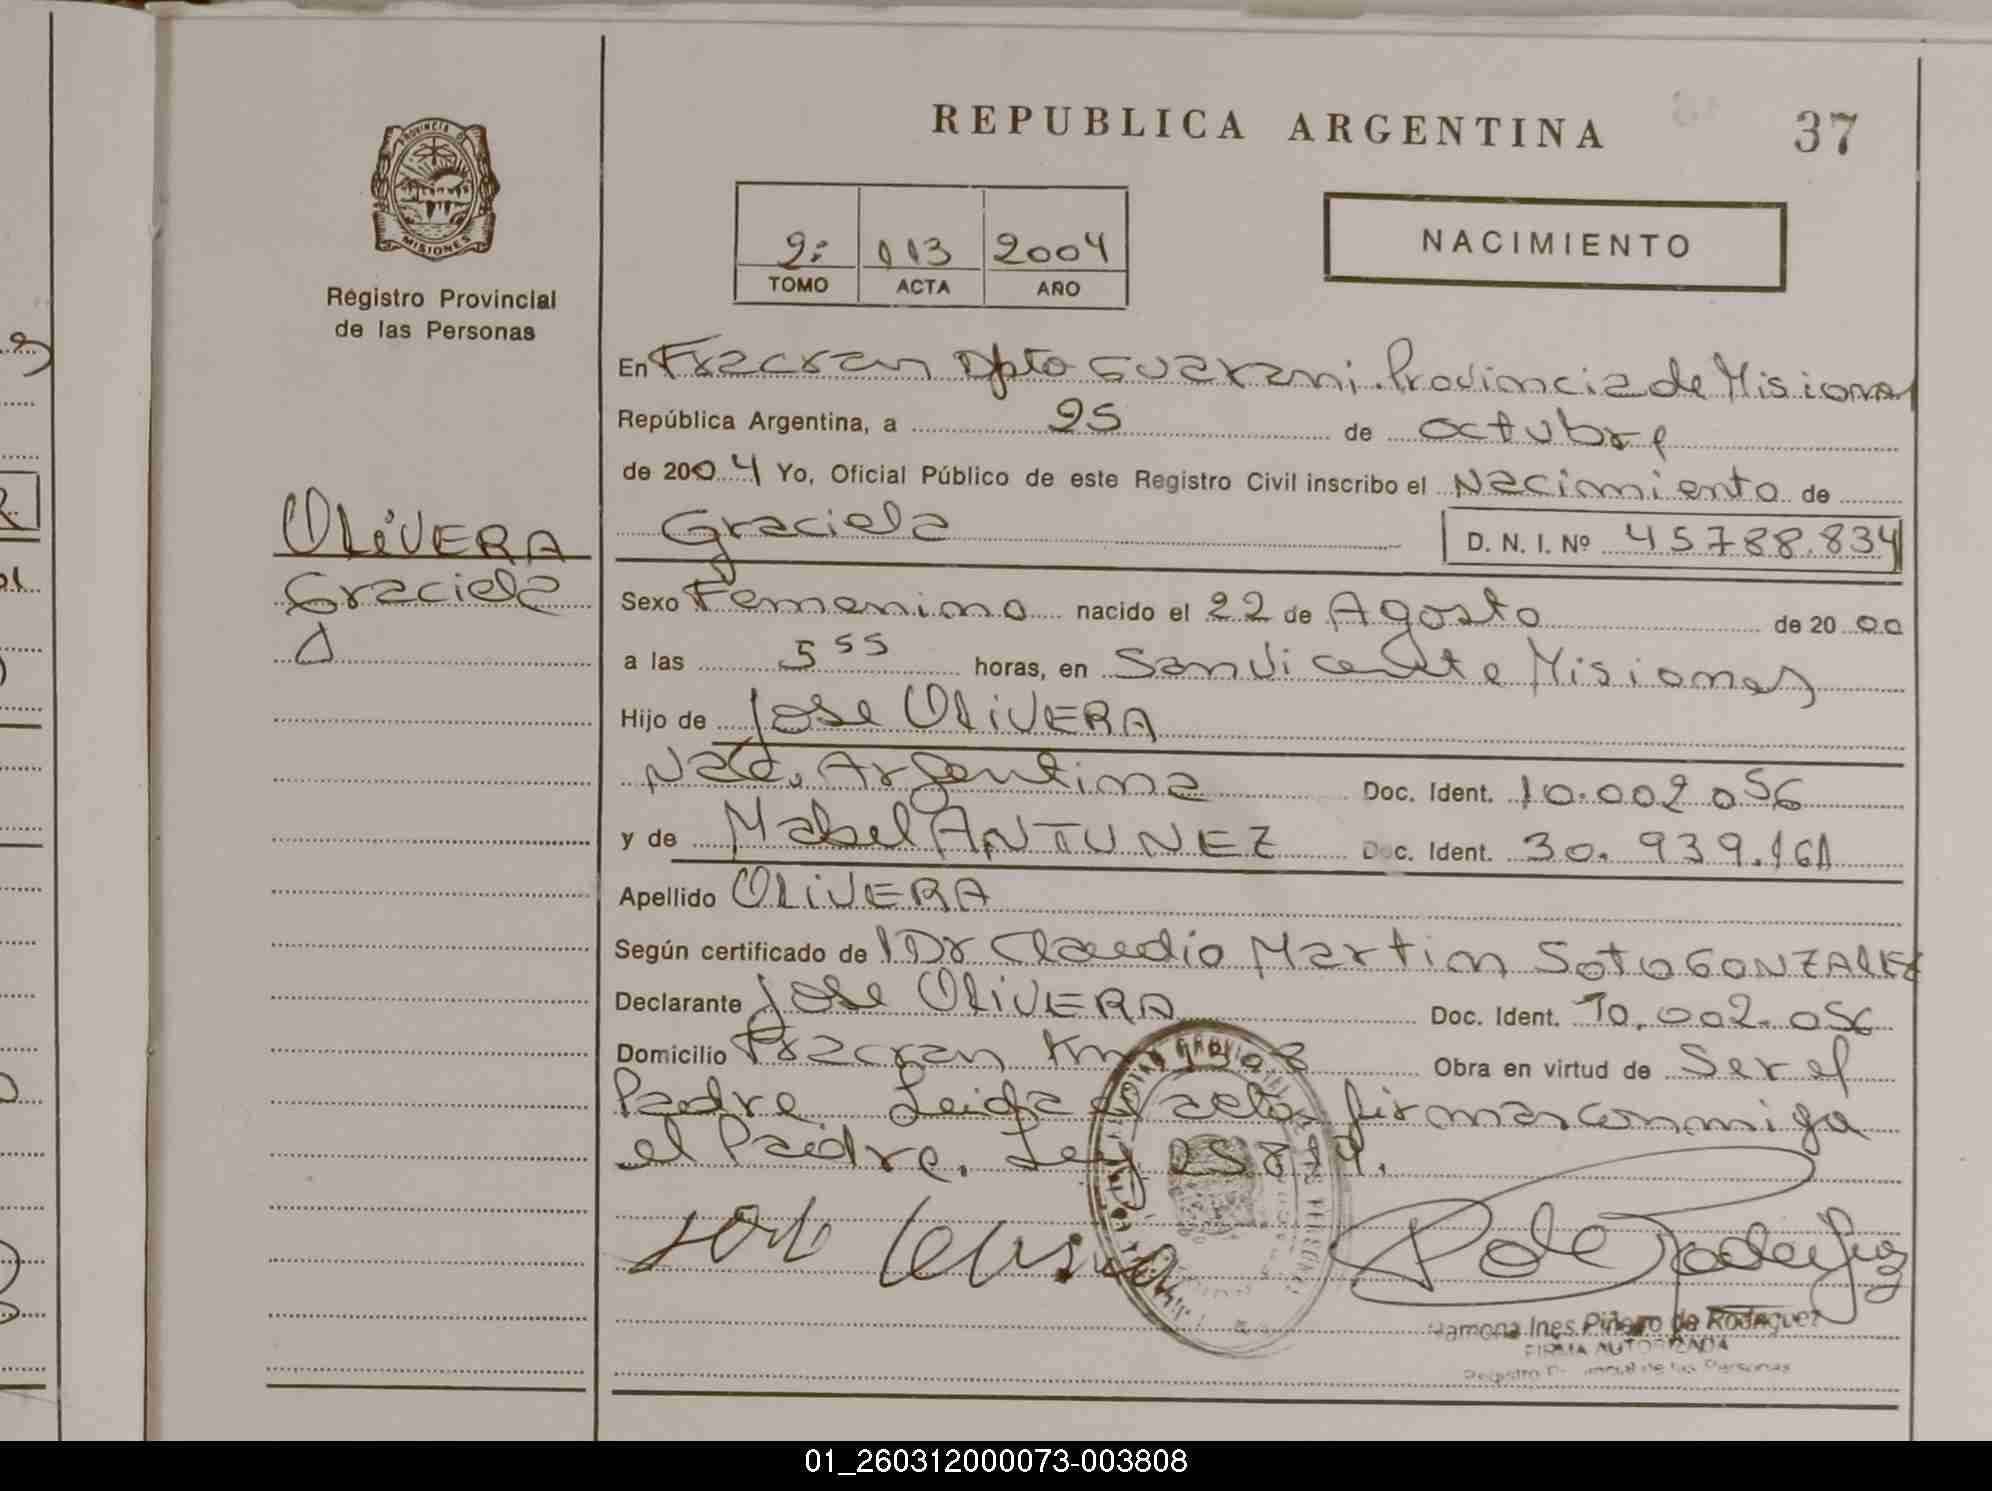 REPUBLICA ARGENTINA
37
PROVINCIA DE
MISIONES
Registro Provincial
de las Personas
2º 113 2004
TOMO ACTA AÑO
NACIMIENTO
En Fracran Dpto Guarani. Provincia de Misiones
República Argentina, a 25 de octubre
de 2004 Yo, Oficial Público de este Registro Civil inscribo el Nacimiento de
Graciela D. N. I. Nº 45788.834
OLiVERA
Graciela
Sexo Femenino nacido el 22 de Agosto de 2000
a las 5 55 horas, en San Vicente Misiones
Hijo de Jose OLiVERA
Nac. Argentina Doc. Ident. 10.002.056
y de Mabel ANTUNEZ Doc. Ident. 30.939.161
Apellido OLiVERA
Según certificado de Dr Claudio Martin Soto GONZALEZ
Declarante Jose OLiVERA Doc. Ident. 10.002.056
Domicilio Fracran Km Obra en virtud de Ser el
Padre Leida el acta firman conmigo
el Padre. Ley 25819.
Ramona Ines Piñeiro de Rodriguez
FIRMA AUTORIZADA
Registro Provincial de las Personas
01_260312000073-003808